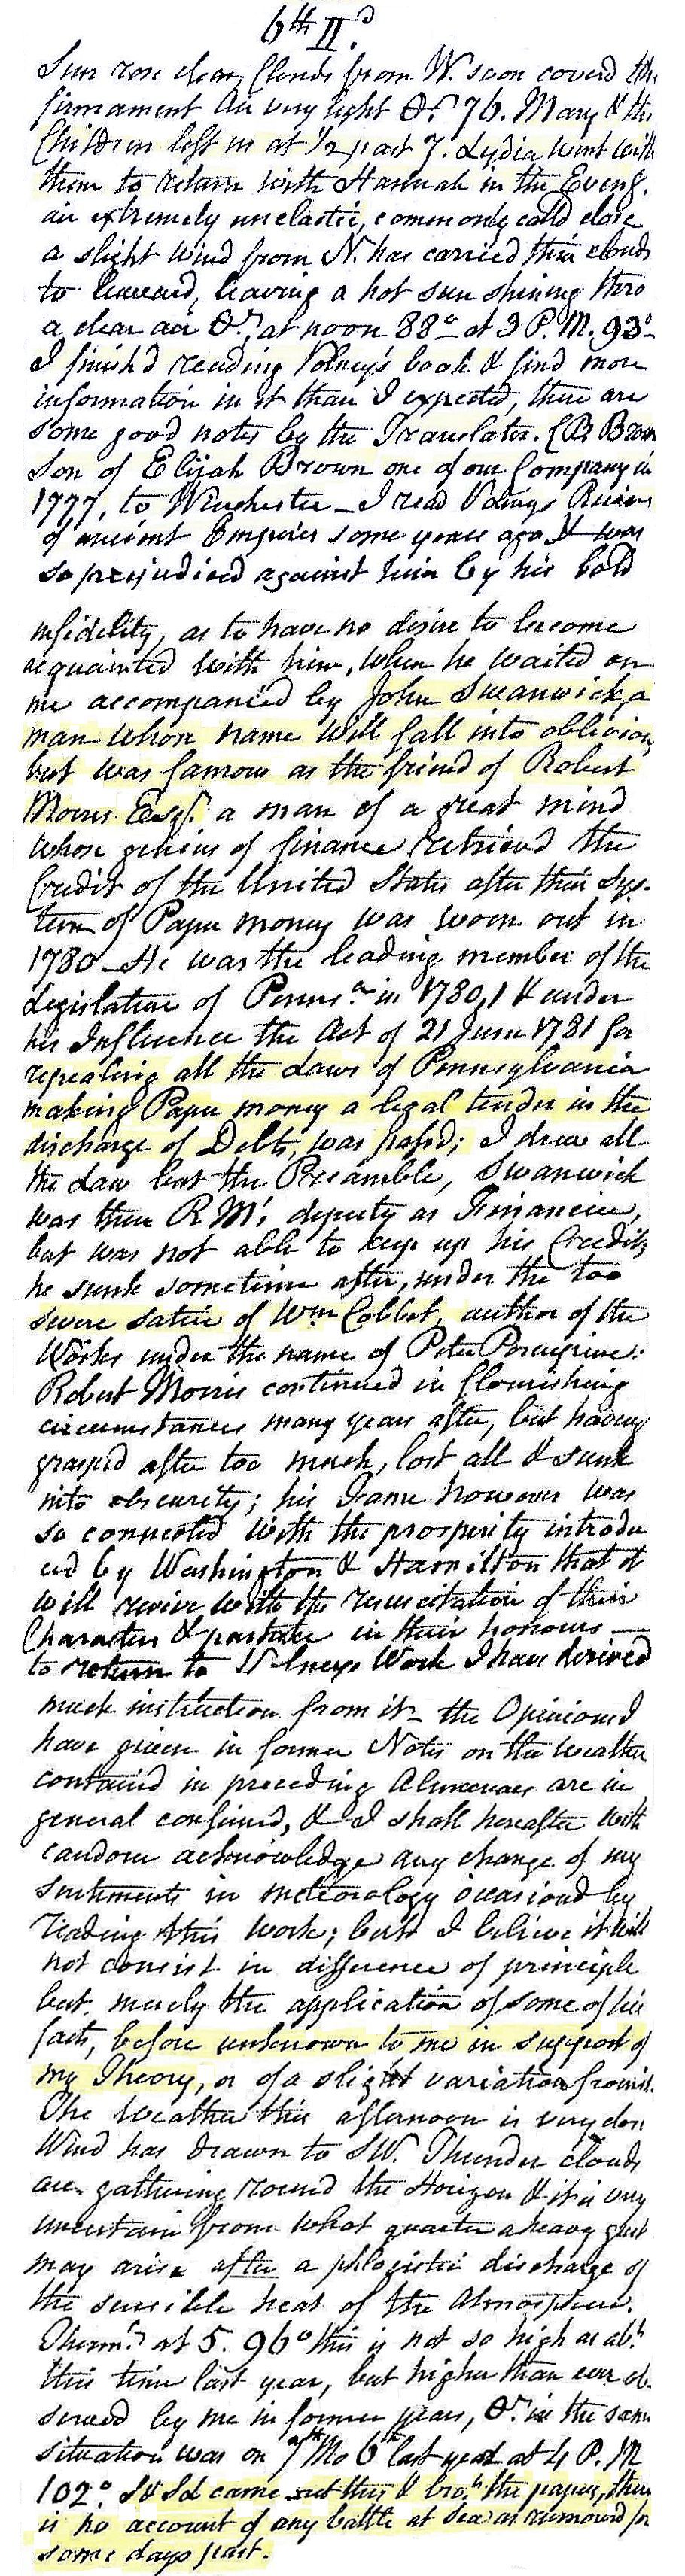 6th II.d
Sun rose clear, Clouds from W. soon coverd the
firmament Air very light Θr 76. Mary & the
Children left us at ½ past 7. Lydia went with
them to return with Hannah in the Eveng.
air extremely unelastic, commonly calld close
a slight Wind from N. has carried thin clouds
to leeward, leaving a hot sun shining thro
a clear air Θr, at noon 88° at 3 P.M. 93°
I finish'd reading Volney's book & find more
information in it than I expected, there are
some good notes by the Translator. (B Brown
Son of Elijah Brown one of our Company in
1777, to Winchester - I read Volneys Ruins
of ancient Empires some years ago & was
so prejudiced against him by his bold
infidelity, as to have no desire to become
acquainted with him, when he waited on
me accompanied by John Swanwick, a
man whose name will fall into oblivion,
but was famous as the friend of Robert
Morris Esqr. a man of a great mind
whose genius of finance retrieved the
Credit of the United States after their Sys-
tem of Paper money was worn out in
1780 - He was the leading member of the
Legislature of Pennsa. in 1780,1 & under
his Influence the Act of 21 June 1781 for
repealing all the Laws of Pennsylvania
making Paper money a legal tender in the
discharge of Debts, was passd; I drew all
the Law but the Preamble, Swanwick
was then R M's deputy as Financier,
but was not able to keep up his Credit,
he sunk sometime after, under the too
severe satire of Wm Cobbet, author of the
Works under the name of Peter Peregrine:
Robert Morris continued in flourishing
circumstances many years after, but having
grasp'd after too much, lost all & sunk
into obscurity; his Fame however was
so connected with the prosperity introdu
ced by Washington & Hamilton that it
will revive with the resuscitation of their
Characters & partake in their honours —
to return to Volneys Work I have derived
much instruction from it - the Opinions I
have given in former Notes on the weather
contained in preceding Almanacs are in
general confirmd, & I shall hereafter with
candour acknowledge any change of my
sentiments in meteorology occasiond by
reading this work; but I believe it will
not consist in difference of principle
but merely the application of some of his
facts, before unknown to me in support of
my Theory, or of a slight variation from it.
The Weather this afternoon is very close
Wind has drawn to SW. Thunder clouds
are gathering round the Horizon & it is very
uncertain from what quarter a heavy gust
may arise after a phlogistic discharge of
the sensible heat of the Atmosphere.
Thermr. at 5. 96° this is not so high as abt.
this time last year, but higher than ever ob-
served by me in former years, Θr. in the same
situation was on 7th Mo 6th last year at 4 P.M
102°. came out this & brot. the papers, there
is no account of any battle at Sea as rumourd for
some days past.